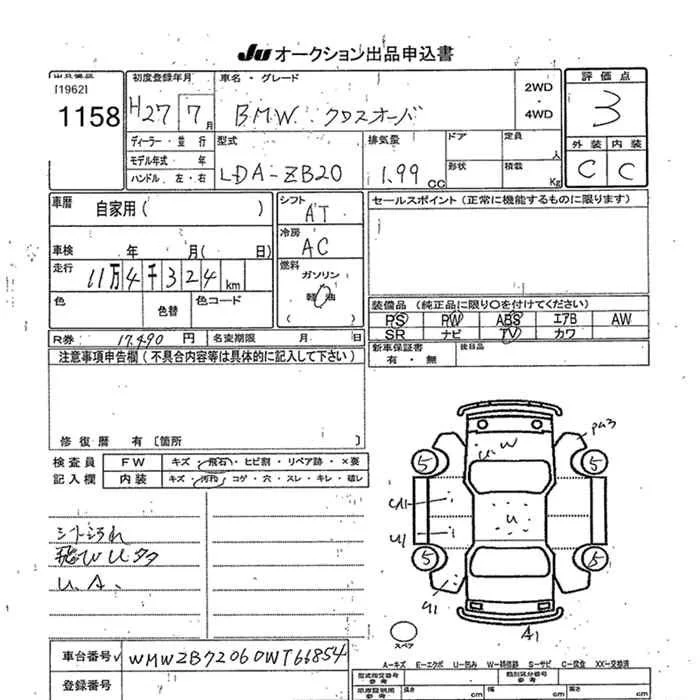 JU オークション出品申込書
[1962]
1158
初度登録年月
H27 7月
車名・グレード
BMW クロスオーバ
2WD
・
4WD
評価点
3
外装 内装
C C
ディーラー・並行
モデル年式 年
ハンドル 左・右
型式
LDA-ZB20
排気量
1.99 CC
ドア
定員
人
形状
積載
Kg
車暦
自家用( )
シフト
AT
セールスポイント (正常に機能するものに限ります)
冷房
AC
車検 年 月( 日)
走行
11万4千324km
燃料
ガソリン
軽油
( )
色
色替
色コード
装備品 (純正品に限り○を付けてください)
PS PW ABS エアB AW
SR ナビ TV カワ
R券 17,490 円
名変期限 月 日
新車保証書
有・無
後日品
注意事項申告欄 (不具合内容等は具体的に記入して下さい)
修復暦 有 〔箇所 〕
検査員
記入欄
FW キズ・飛石・ヒビ割・リペア跡・×要
内装 キズ・汚れ・コゲ・穴・スレ・キレ・破レ
シート汚れ
飛びUタタ
U.A.
W
U
5 5
U1
U
5 5
U1
A1
スペア
車台番号 WMWZB72060WT66854
登録番号
A−キズ E−エクボ U−凹み W−補修跡 S−サビ C−腐食 XX−交換済
型式指定番号
参考
類別区分番号
参考
参考
長さ cm 幅 cm 高さ cm